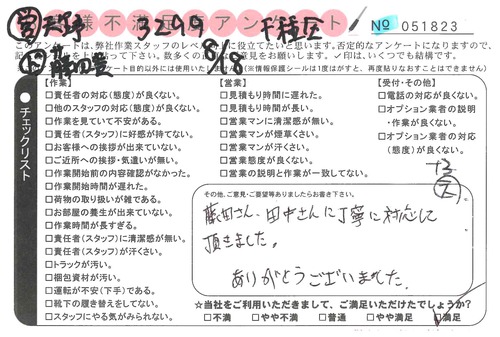 ㊂ 天野 3299 千種区
お客様不満足度アンケート
№ 051823
8/8
このアンケートは、弊社作業スタッフのレベル向上に役立てたいと思います。否定的なアンケートになりますので、
アンケート目的以外には使用いたしません(※情報保護シールは1度がすと、再度貼りなおすことはできません)
チェックリスト
【作業】
□責任者の対応(態度)が良くない。
□他のスタッフの対応(態度)が良くない。
□作業を見ていて不安がある。
□責任者(スタッフ)に好感が持てない。
□お客様への挨拶が出来ていない。
□ご近所への挨拶・気遣いが無い。
□作業開始前の内容確認がなかった。
□作業開始時間が遅れた。
□荷物の取り扱いが雑である。
□お部屋の養生が出来ていない。
□作業時間が長すぎる。
□責任者(スタッフ)に清潔感が無い。
□責任者(スタッフ)が汗くさい。
□トラックが汚い。
□梱包資材が汚い。
□運転が不安(下手)である。
□靴下の履き替えをしてない。
□スタッフにやる気がみられない。
【営業】
□見積もり時間に遅れた。
□見積もり時間が長い。
□営業マンに清潔感が無い。
□営業マンが煙草くさい。
□営業マンが汗くさい。
□営業態度が良くない。
□営業の説明と作業が一致してない。
【受付・その他】
□電話の対応が良くない。
□オプション業者の説明
・作業が良くない。
□オプション業者の対応
(態度)が良くない。
その他、ご意見・ご要望等ありましたらお書き下さい。
藤田さん、田中さんに丁寧に対応して
頂きました。
ありがとうございました。
☆当社をご利用いただきまして、ご満足いただけたでしょうか?
□不満 □やや不満 □普通 □やや満足 □満足